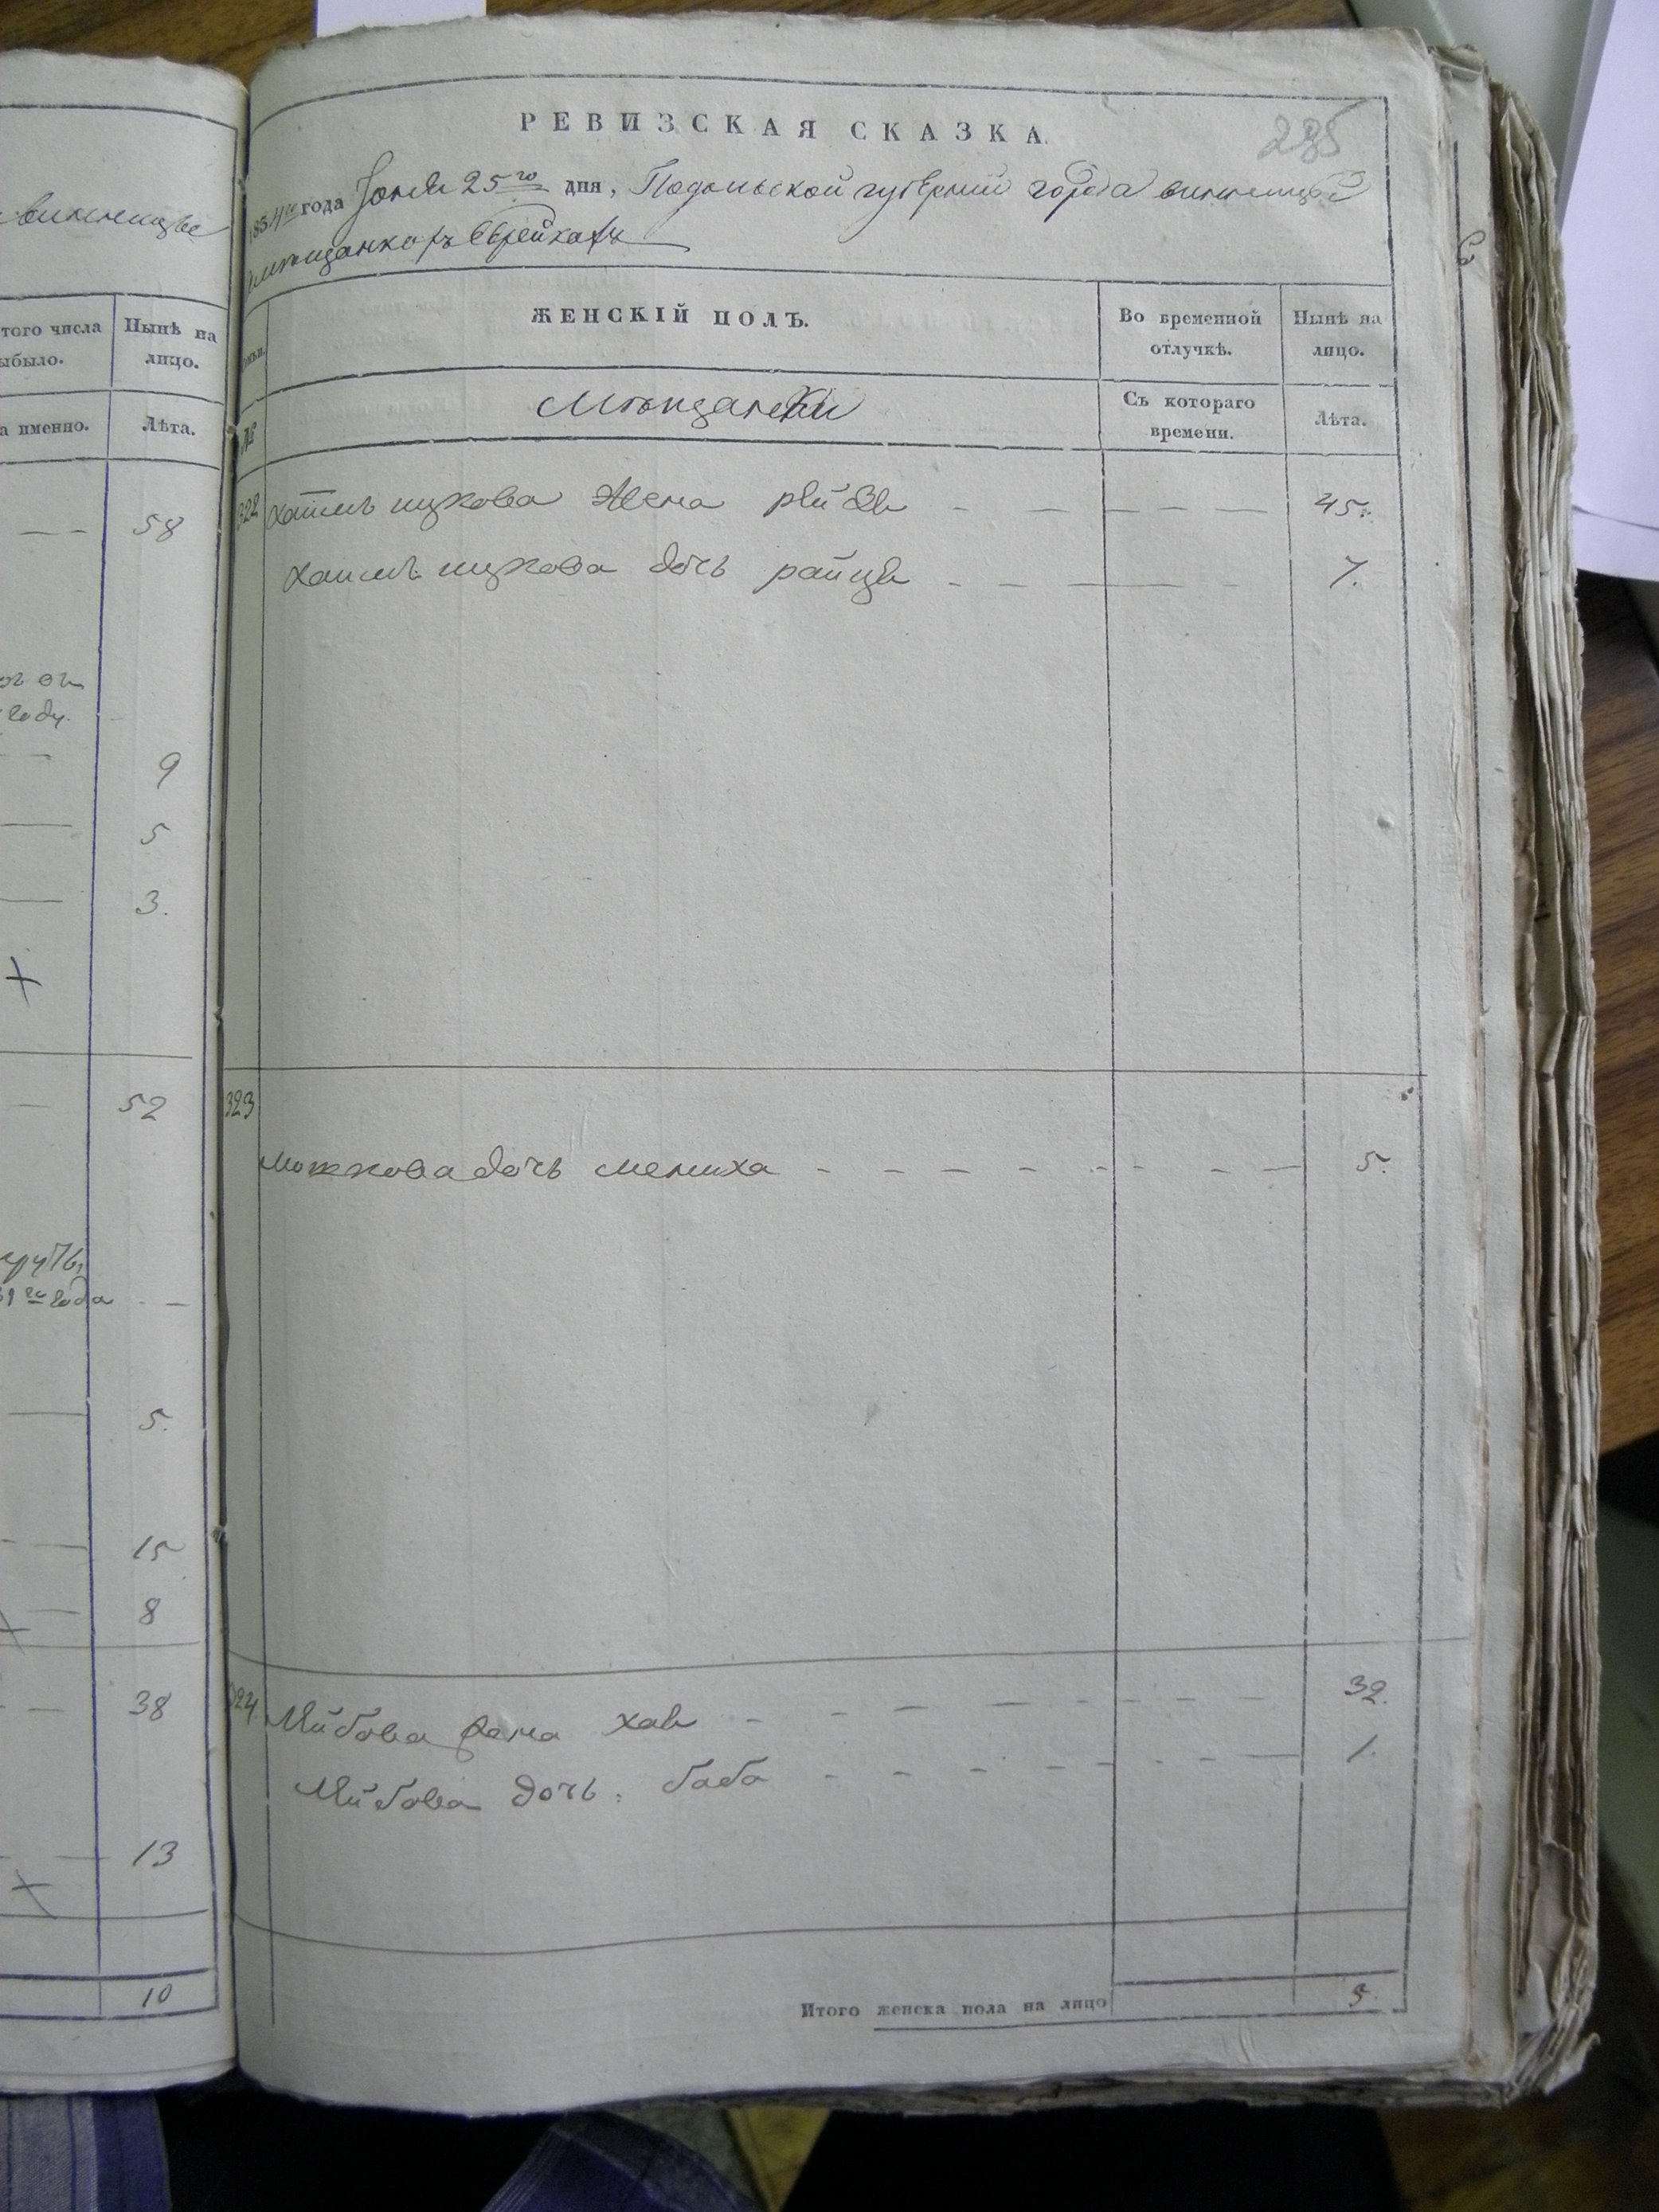 винницы
того числа
было.
Нынѣ на
лицо.
а именно.
Лѣта.
58
году.
9
5
3.
52
года
5.
15
8
38
13
10
РЕВИЗСКАЯ СКАЗКА.
285
1854го года Іюня 25го дня, Подольской губерніи города винницы
мѣщанкахъ Еврейкахъ
ЖЕНСКІЙ ПОЛЪ.
Во временной
отлучкѣ.
Нынѣ на
лицо.
№
Мѣщанки
Съ котораго
времени.
Лѣта.
322 Хаимъ ицкова жена рейзя 45.
Хаимъ ицкова дочь райця 7.
323
Мошкова дочь мениха 5.
324 Лейбова жена хая 32.
Лейбова дочь баба 1.
Итого женска пола на лицо 5.